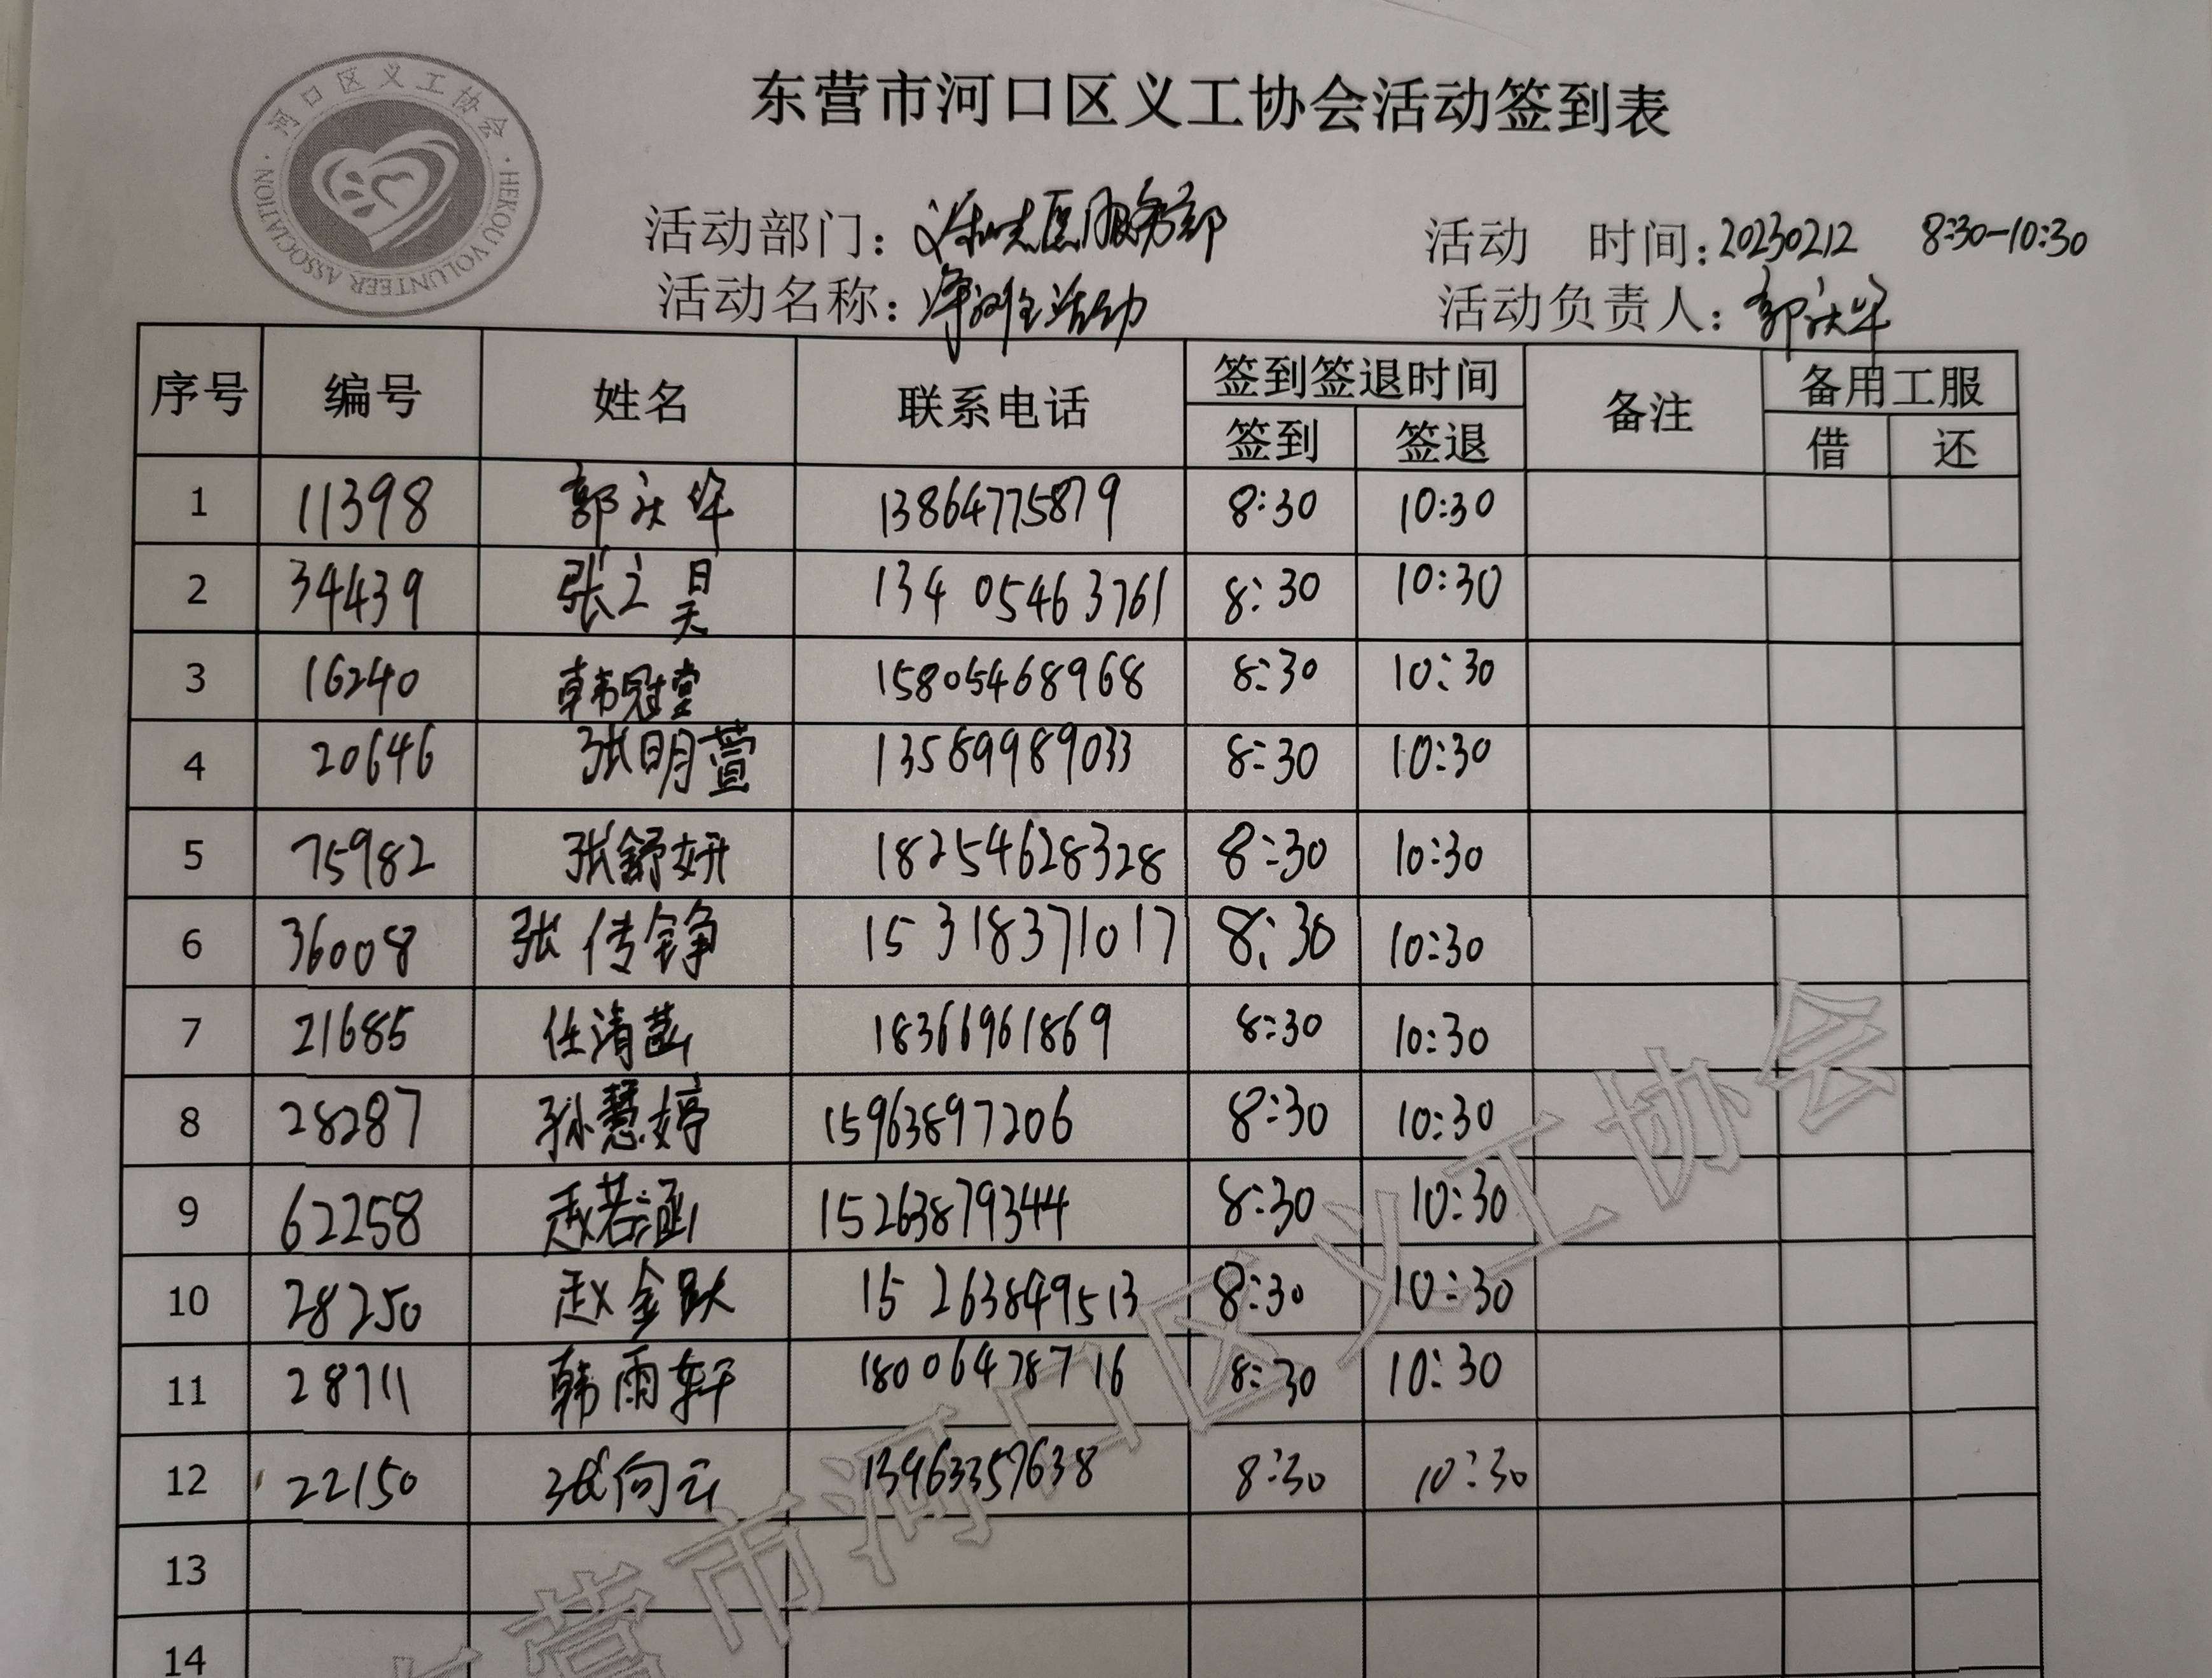 东营市河口区义工协会活动签到表
河口区义工协会
HEKOU VOLUNTEER ASSOCIATION
活动部门：义和志医服务部 活动 时间：20230212 8:30-10:30
活动名称：净滩活动 活动负责人：郭庆华
序号 编号 姓名 联系电话 签到签退时间 备注 备用工服
签到 签退 借 还
1 11398 郭庆华 13864775879 8:30 10:30
2 34439 张之昊 13405463761 8:30 10:30
3 16240 韩冠堂 15805468968 8:30 10:30
4 20646 张明萱 13589989033 8:30 10:30
5 75982 张舒妍 18254628328 8:30 10:30
6 36008 张传铮 15318371017 8:30 10:30
7 21685 任清菡 18366961869 8:30 10:30
8 28287 孙慧婷 15963897206 8:30 10:30
9 62258 赵若涵 15263879344 8:30 10:30
10 28250 赵金跃 15263849513 8:30 10:30
11 28711 韩雨轩 18006478716 8:30 10:30
12 22150 张向云 13963357638 8:30 10:30
13
14
东营市河口区义工协会